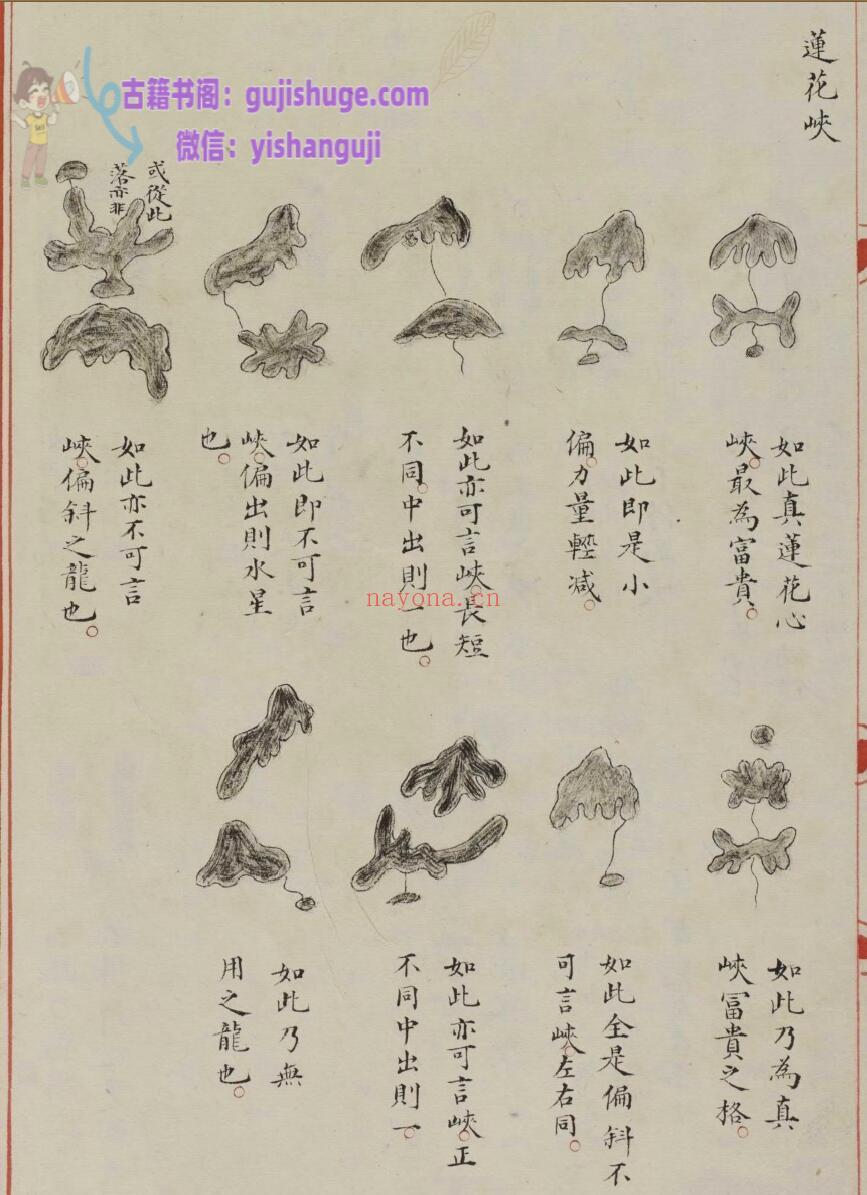 古籍书阁：gujishuge.com
微信：yishanguji
蓮花峽
如此真蓮花心
峽。最為富貴。
如此即是小
偏。力量輕減。
如此亦可言峽。長短
不同。中出則一也。
如此即不可言
峽。偏出則水星
也。
或從此
落亦非
如此亦不可言
峽。偏斜之龍也。
如此乃為真
峽富貴之格。
如此全是偏斜不
可言峽。左右同。
如此亦可言峽。正
不同中出則一。
如此乃無
用之龍也。
nayona.cn